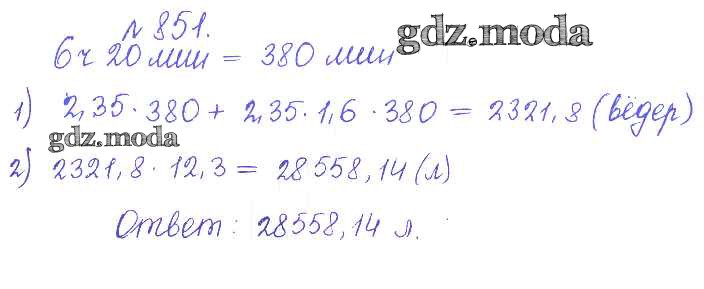 № 851.
6 ч 20 мин = 380 мин
gdz.moda
1) 2,35 · 380 + 2,35 · 1,6 · 380 = 2321,8 (вёдер)
gdz.moda
2) 2321,8 · 12,3 = 28558,14 (л)
Ответ: 28558,14 л.